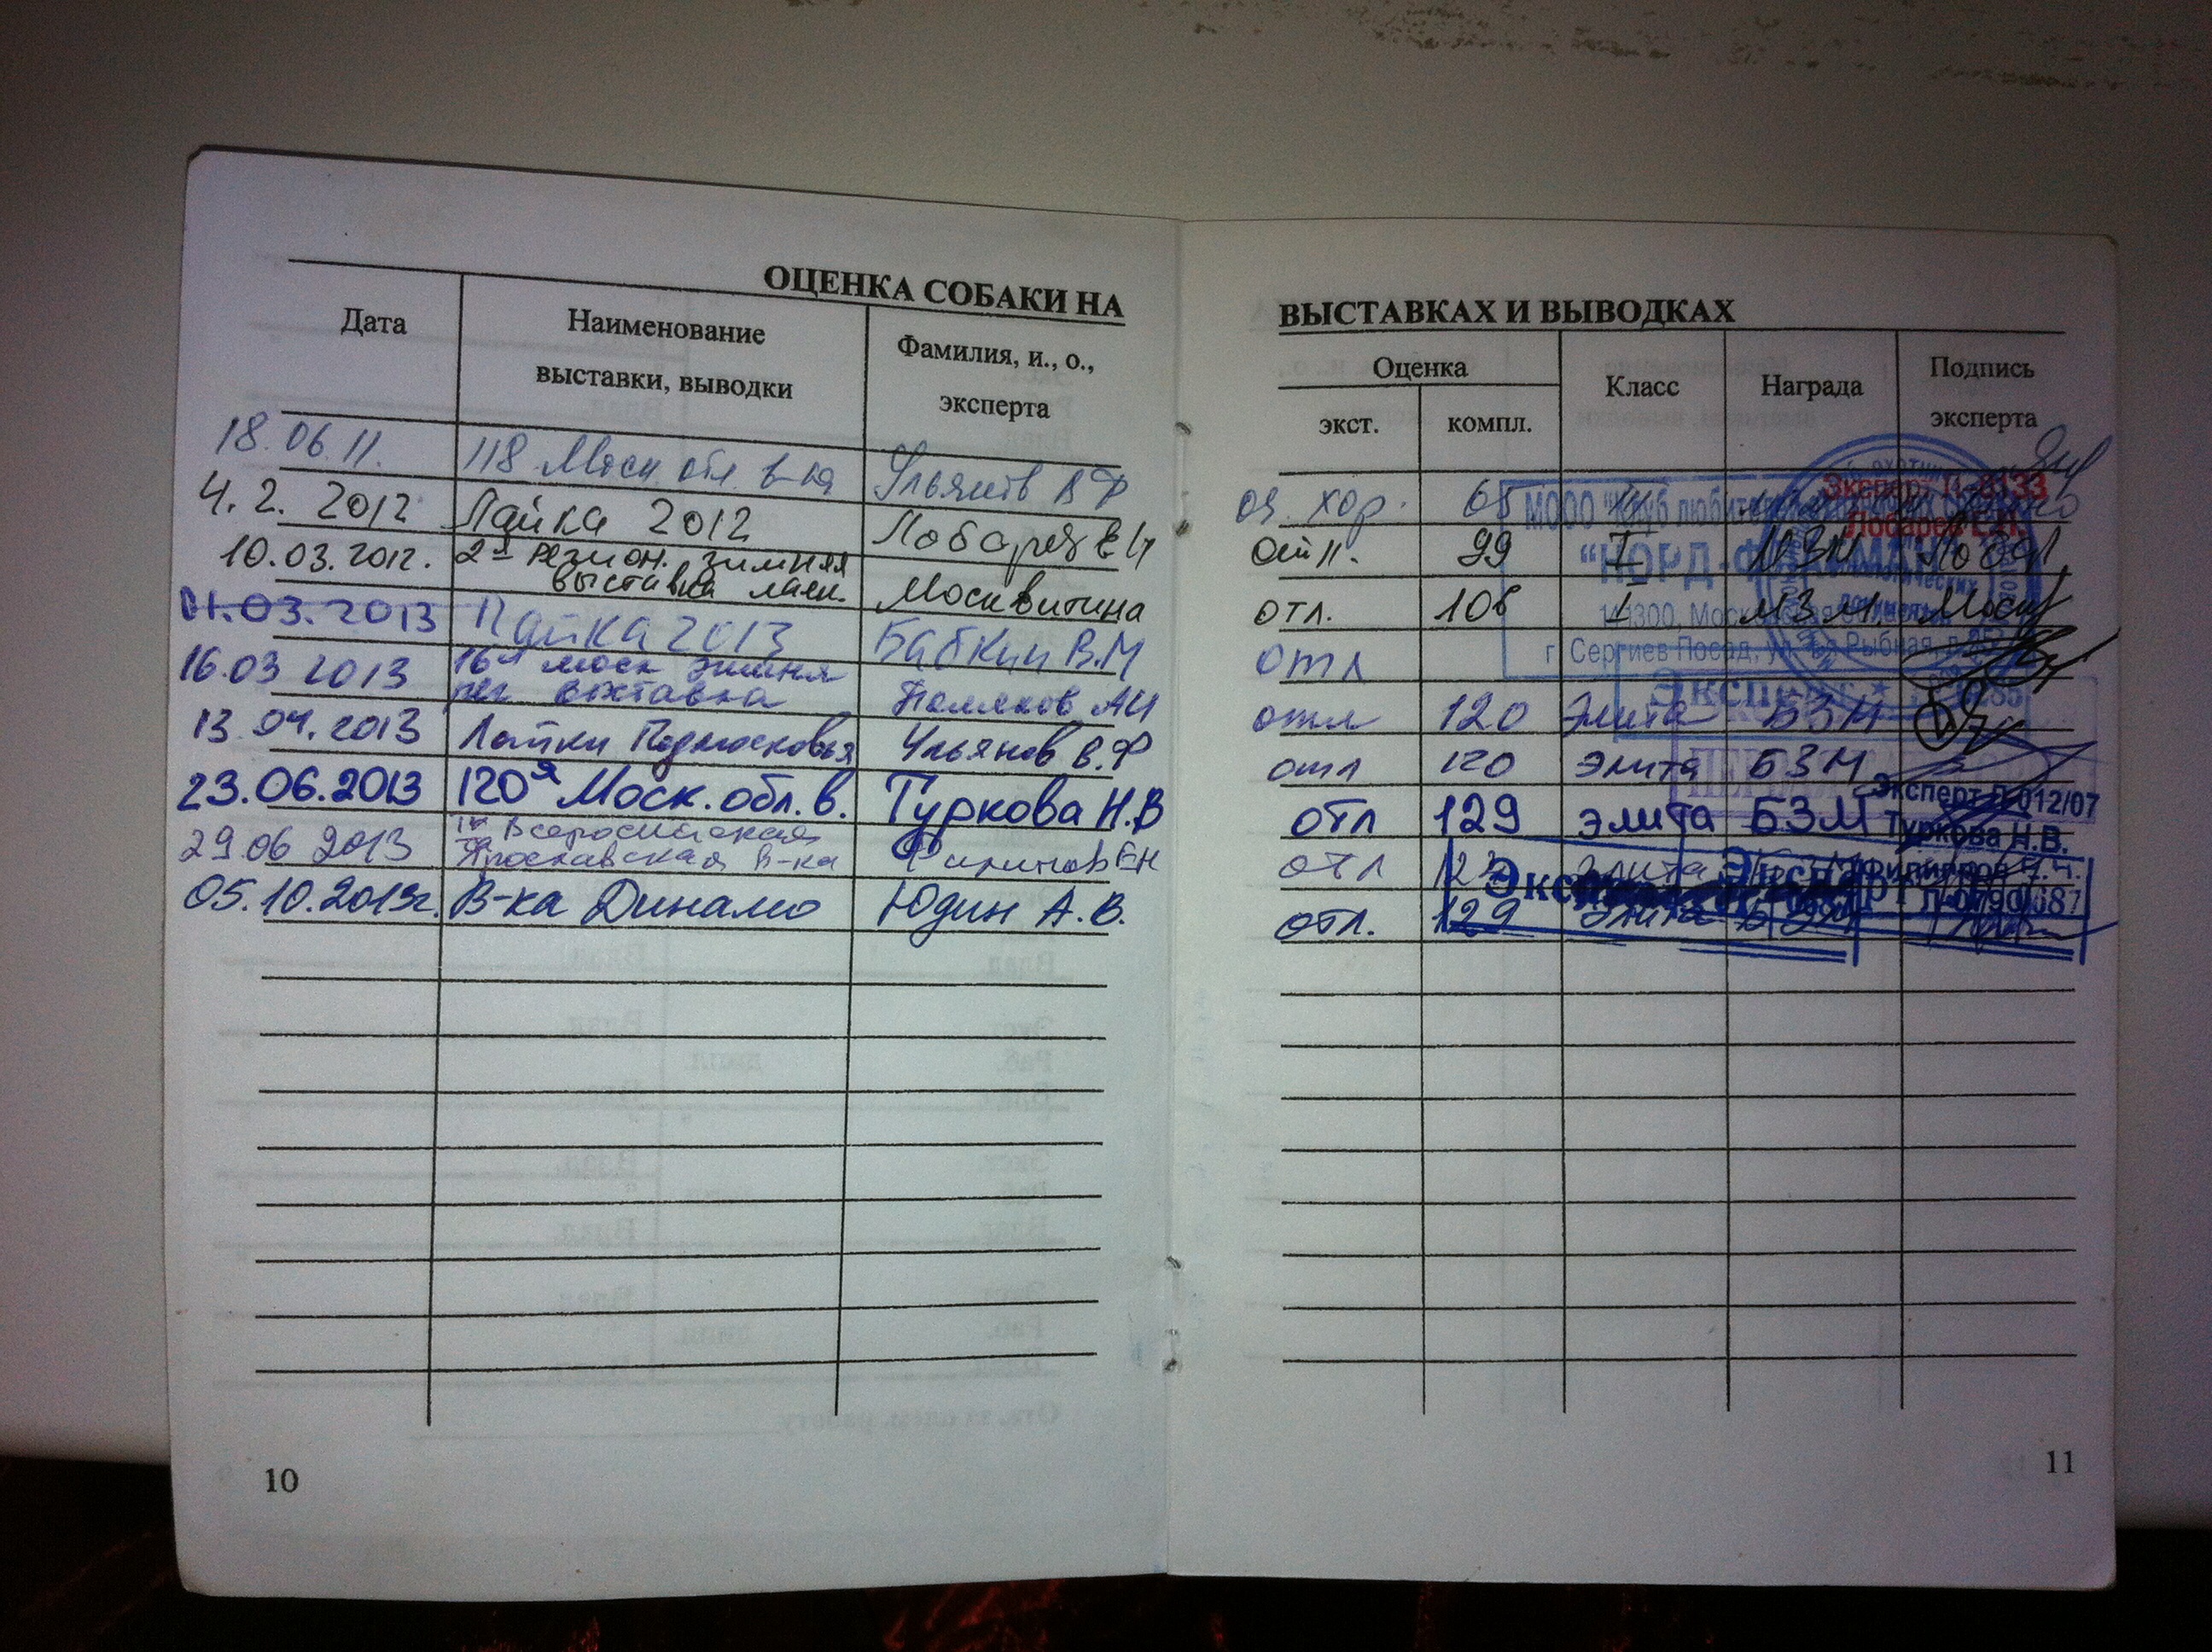 ОЦЕНКА СОБАКИ НА
Дата
Наименование
выставки, выводки
Фамилия, и., о.,
эксперта
18.06.11. 118 Моск обл. в-ка Ульянов В Ф
4.2. 2012 Лайка 2012 Лобарев Е И
10.03.2012. 2я регион. зимняя
выставка лаек. Москвитина
01.03.2013 Лайка 2013 Бабкин В.М
16.03 2013 16я моск зимня
рег выставка Поляков АИ
13.04.2013 Лайки Подмосковья Ульянов В.Ф
23.06.2013 120я Моск. обл. в. Туркова Н.В
29.06 2013 Всероссийская
Ярославская В-ка
05.10.2013г. В-ка Динамо Юдин А.В.
10
ВЫСТАВКАХ И ВЫВОДКАХ
Оценка
экст.
компл.
Класс
Награда
Подпись
эксперта
оч. хор.
отл. 99 I МЗМ
отл. 106 I МЗМ
отл
отл 120 Элита БЗМ
отл 120 Элита БЗМ
отл 129 элита БЗМ
отл 123 Элита
отл. 129 Элита БЗМ
МООО "Клуб
"НОРД-
г. Сергиев Посад, ул.
Эксперт
Лобарев Е.И.
Эксперт
Эксперт Л-012/07
Туркова Н.В.
Эксперт
11